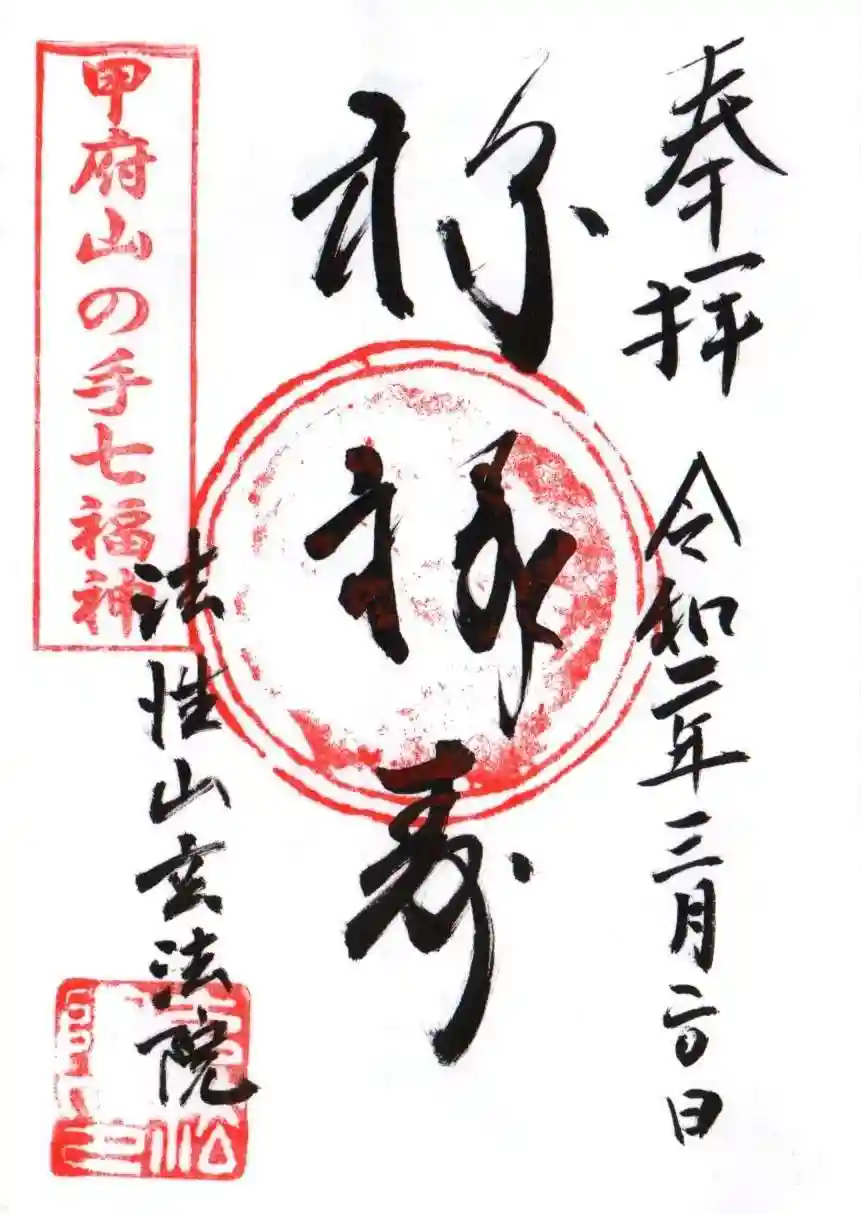 奉拝
令和二年三月二〇日
福禄寿
法性山玄法院
甲府山の手七福神